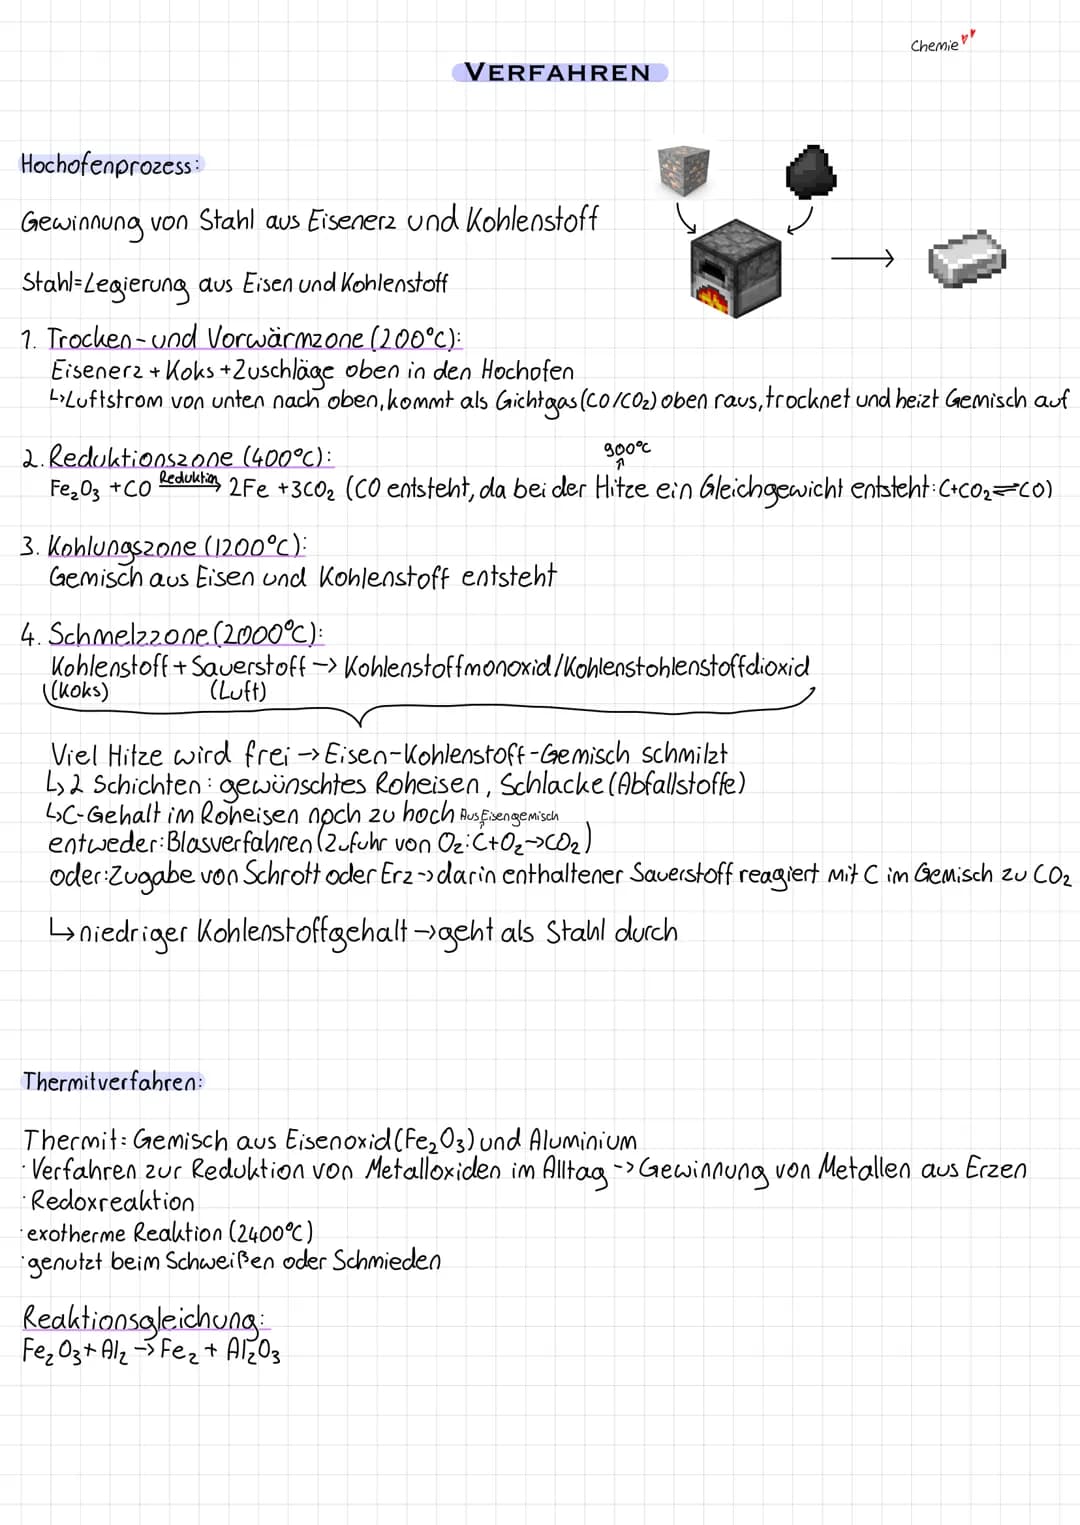 Chemie
VERFAHREN
Hochofenprozess:
Gewinnung von Stahl aus Eisenerz und Kohlenstoff
Stahl=Legierung aus Eisen und Kohlenstoff
1. Trocken- und Vorwärmzone (200°C):
Eisenerz + Koks + Zuschläge oben in den Hochofen
↳Luftstrom von unten nach oben, kommt als Gichtgas (CO/CO₂) oben raus, trocknet und heizt Gemisch auf
900°C
2. Reduktionszone (400°C):
Fe₂O₃ + CO Reduktion→ 2Fe + 3CO₂ (CO entsteht, da bei der Hitze ein Gleichgewicht entsteht: C+CO₂⇌CO)
3. Kohlungszone (1200°C):
Gemisch aus Eisen und Kohlenstoff entsteht
4. Schmelzzone (2000°C):
Kohlenstoff + Sauerstoff -> Kohlenstoffmonoxid/Kohlenstohlenstoffdioxid
(Koks) (Luft)
Viel Hitze wird frei → Eisen-Kohlenstoff-Gemisch schmilzt
↳ 2 Schichten: gewünschtes Roheisen, Schlacke (Abfallstoffe)
↳C-Gehalt im Roheisen noch zu hoch Aus Eisengemisch
entweder: Blasverfahren (Zufuhr von O₂: C+O₂→CO₂)
oder: Zugabe von Schrott oder Erz -> darin enthaltener Sauerstoff reagiert mit C im Gemisch zu CO₂
↳niedriger Kohlenstoffgehalt → geht als Stahl durch
Thermitverfahren:
Thermit: Gemisch aus Eisenoxid (Fe₂O₃) und Aluminium
· Verfahren zur Reduktion von Metalloxiden im Alltag -> Gewinnung von Metallen aus Erzen
· Redoxreaktion
· exotherme Reaktion (2400°C)
· genutzt beim Schweißen oder Schmieden
Reaktionsgleichung:
Fe₂O₃ + Al₂ -> Fe₂ + Al₂O₃